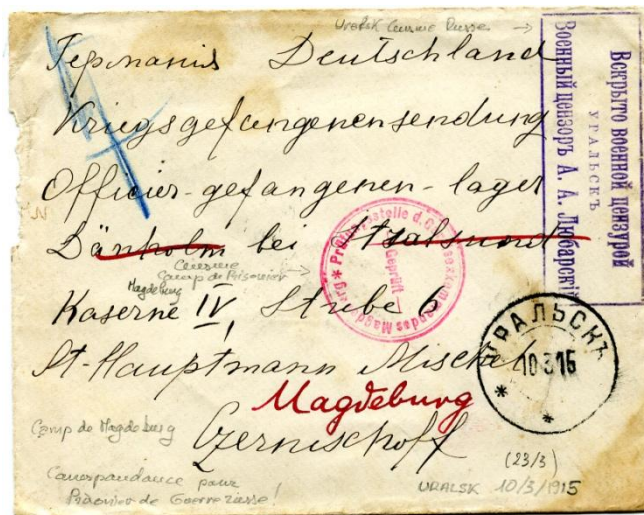 Uralsk Censure Russe →
Германія Deutschland
Kriegsgefangenensendung
Officier-gefangenen-lager
Dänholm bei Stralsund
Censure
Camp de Prisonnier →
Magdeburg
Kaserne IV, Stube 6
St-Hauptmann Mischel
Magdeburg
Czernischoff
Camp de Magdeburg
Correspondance pour
Prisonnier de Guerre russe!
(23/3)
URALSK 10/3/1915
Вскрыто военной цензурой
УРАЛЬСКЪ
Военный цензоръ А. А. Любарскій
Geprüft
УРАЛЬСКЪ
10 3 15